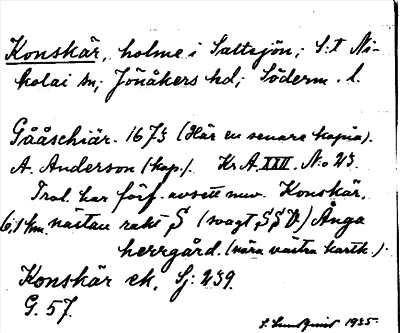 Konskär, holme i Saltsjön; S:t Ni-
kolai sn; Jönåkers hd; Söderm. l.
Gååschiär. 1673 (Här en senare kopia).
A. Anderson (kop.). Kr A XXII. N:o 43.
Trol. har förf. avsett nuv. Konskär,
6,1 km. nästan rakt S (svagt SSV) Ånga
herrgård. (nära västra kartk.).
Konskär ek. Sj: 239.
G. 57.
S. Sundquist 1935.